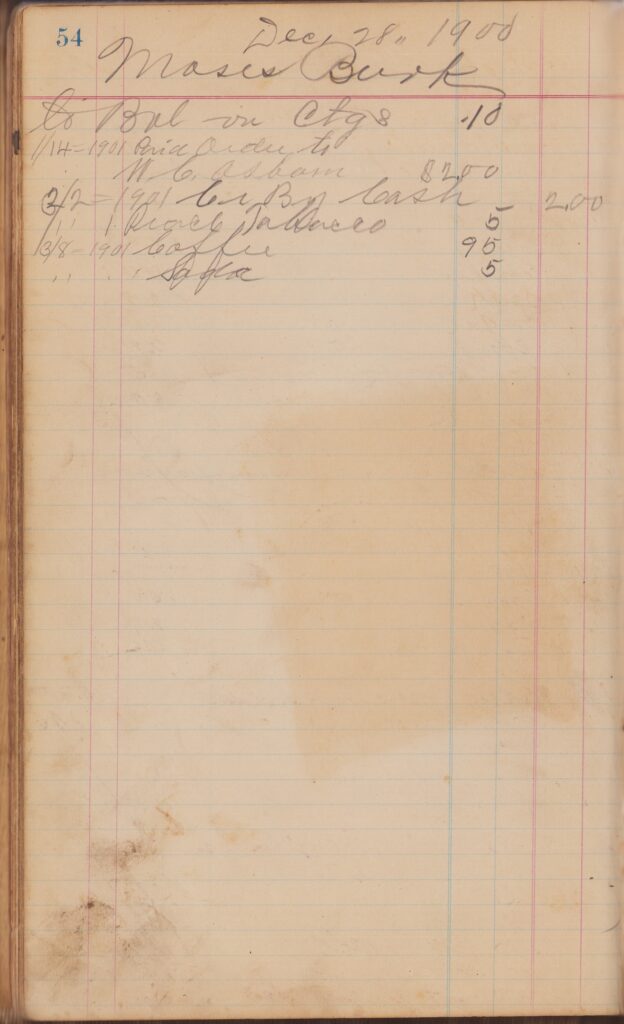 54
Dec, 28,, 1900
Moses Burk
to Bal on Ctgs .10
1/14 - 1901 Paid Order to
W C. Osborn $2.00
2/2 - 1901 Cr By Cash 2.00
,, ,, 1 Tobacco 5
3/8 - 1901 Coffee 95
,, ,, ,, Soda 5